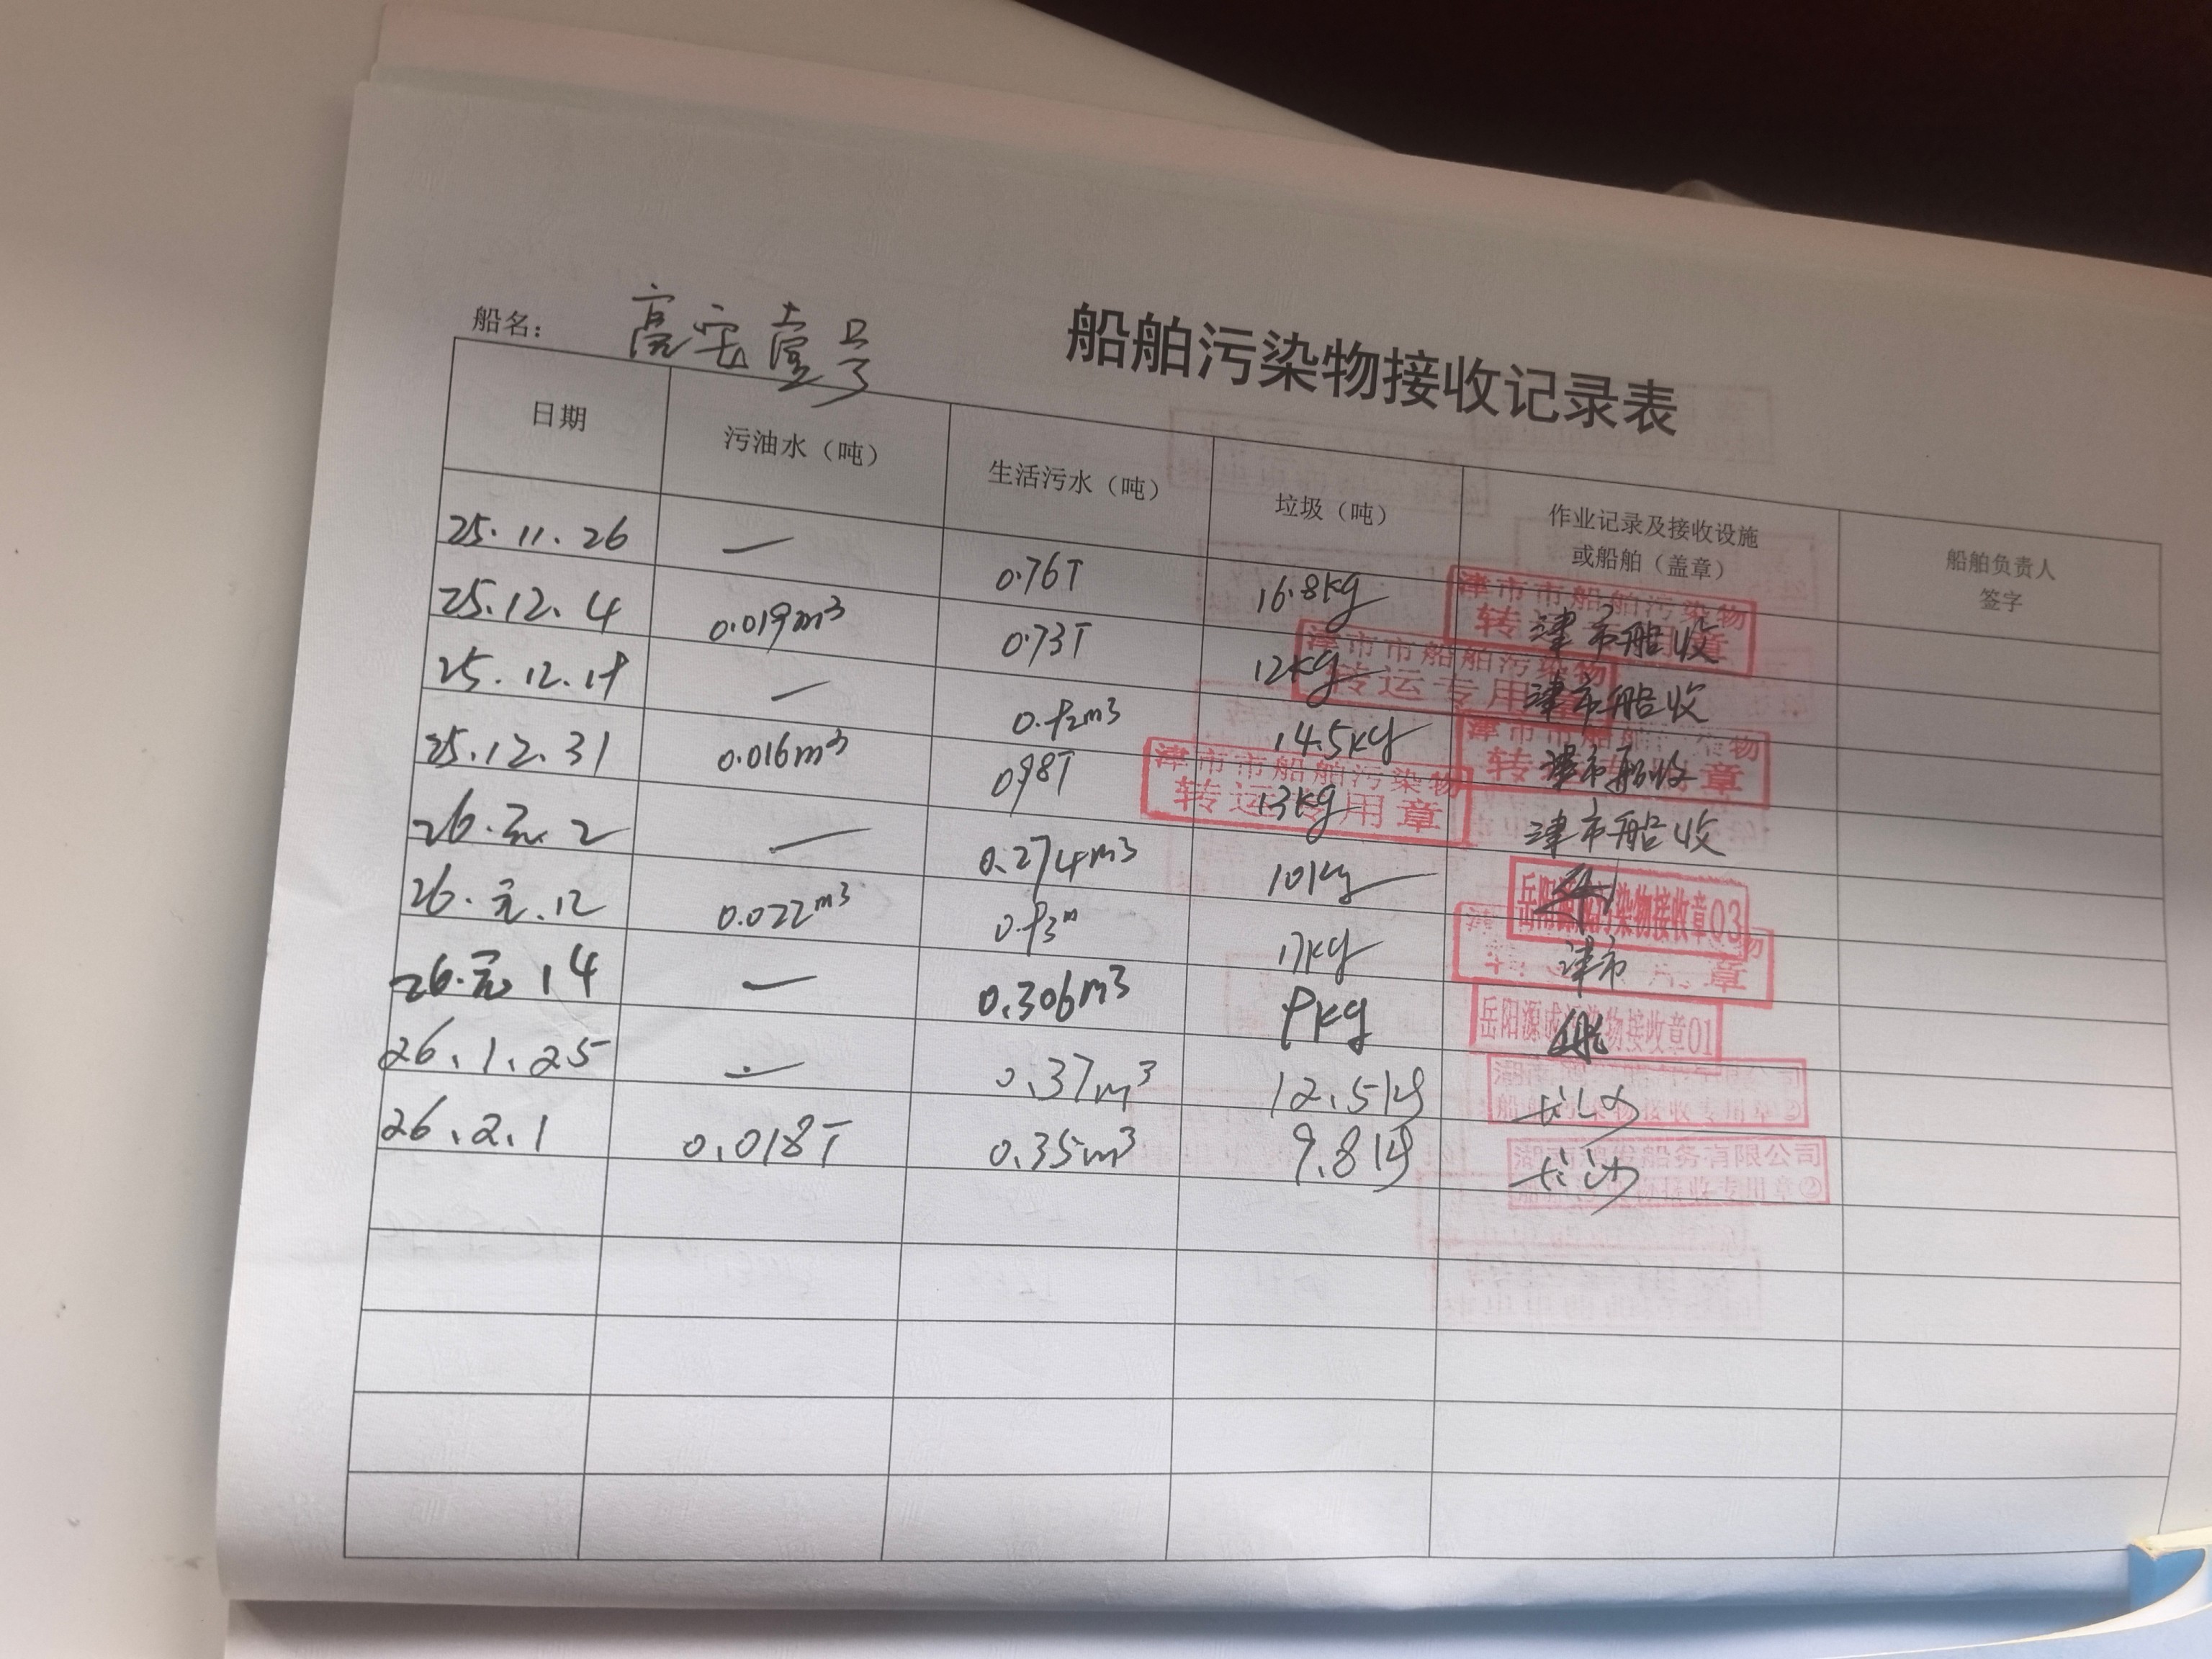 船舶污染物接收记录表
船名： 高宏壹号
日期 污油水（吨） 生活污水（吨） 垃圾（吨） 作业记录及接收设施或船舶（盖章） 船舶负责人签字
25.11.26 — 0.76T 16.8kg 津市船收 津市市船舶污染物转运专用章
25.12.4 0.019m³ 0.73T 12kg 津市船收 津市市船舶污染物转运专用章
25.12.19 — 0.92m³ 14.5kg 津市船收 津市市船舶污染物转运专用章
25.12.31 0.016m³ 0.98T 13kg 津市船收 津市市船舶污染物转运专用章
26.元.2 — 0.274m³ 10kg 岳阳源成污染物接收章03
26.元.12 0.022m³ 0.93m 17kg 津市 章
26.元.14 — 0.306m³ 9kg 岳阳源成污染物接收章01
26.1.25 — 0.37m³ 12.5kg 长沙 船舶污染物接收专用章②
26.2.1 0.018T 0.35m³ 9.8kg 长沙 船务有限公司 接收专用章②